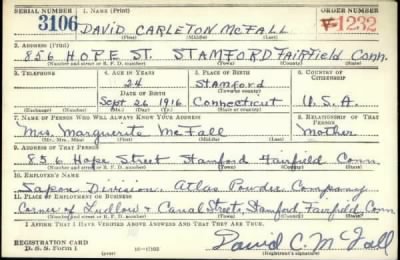 SERIAL NUMBER 1. NAME (Print) ORDER NUMBER
3106 DAVID CARLETON McFALL V-1232
(First) (Middle) (Last)
2. ADDRESS (Print)
856 HOPE ST. STAMFORD Fairfield Conn.
(Number and street or R. F. D. number) (Town) (County) (State)
3. TELEPHONE 4. AGE IN YEARS 5. PLACE OF BIRTH 6. COUNTRY OF CITIZENSHIP
24 Stamford
DATE OF BIRTH (Town or county)
Sept 26 1916 Connecticut U.S.A.
(Exchange) (Number) (Mo.) (Day) (Yr.) (State or country)
7. NAME OF PERSON WHO WILL ALWAYS KNOW YOUR ADDRESS 8. RELATIONSHIP OF THAT PERSON
Mrs. Marguerite McFall Mother
(Mr., Mrs., Miss) (First) (Middle) (Last)
9. ADDRESS OF THAT PERSON
856 Hope Street Stamford Fairfield Conn
(Number and street or R. F. D. number) (Town) (County) (State)
10. EMPLOYER'S NAME
Sapon Division. Atlas Powder Company
11. PLACE OF EMPLOYMENT OR BUSINESS
Corner of Ludlow & Canal Streets, Stamford, Fairfield, Conn
(Number and street or R. F. D. number) (Town) (County) (State)
I AFFIRM THAT I HAVE VERIFIED ABOVE ANSWERS AND THAT THEY ARE TRUE.
REGISTRATION CARD David C. McFall
D. S. S. Form 1 (Registrant's signature)